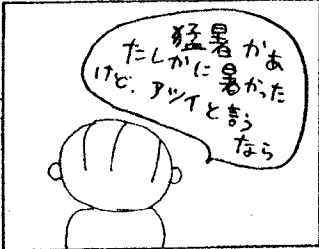 猛暑かぁ
たしかに暑かった
けど、アツイと言う
なら